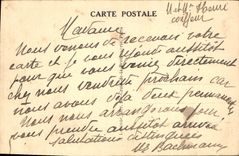 CARTE POSTALE
Mr et Mme Henri
coiffeur
Madame
Nous venons de recevoir votre
carte et je vous réponds aussitôt
pour que vous veniez directement
chez nous vendredi prochain car
nous avons déjà deux
Nous nous arrangerons pour
vous prendre aussitôt arrivée
salutations
Bachmann